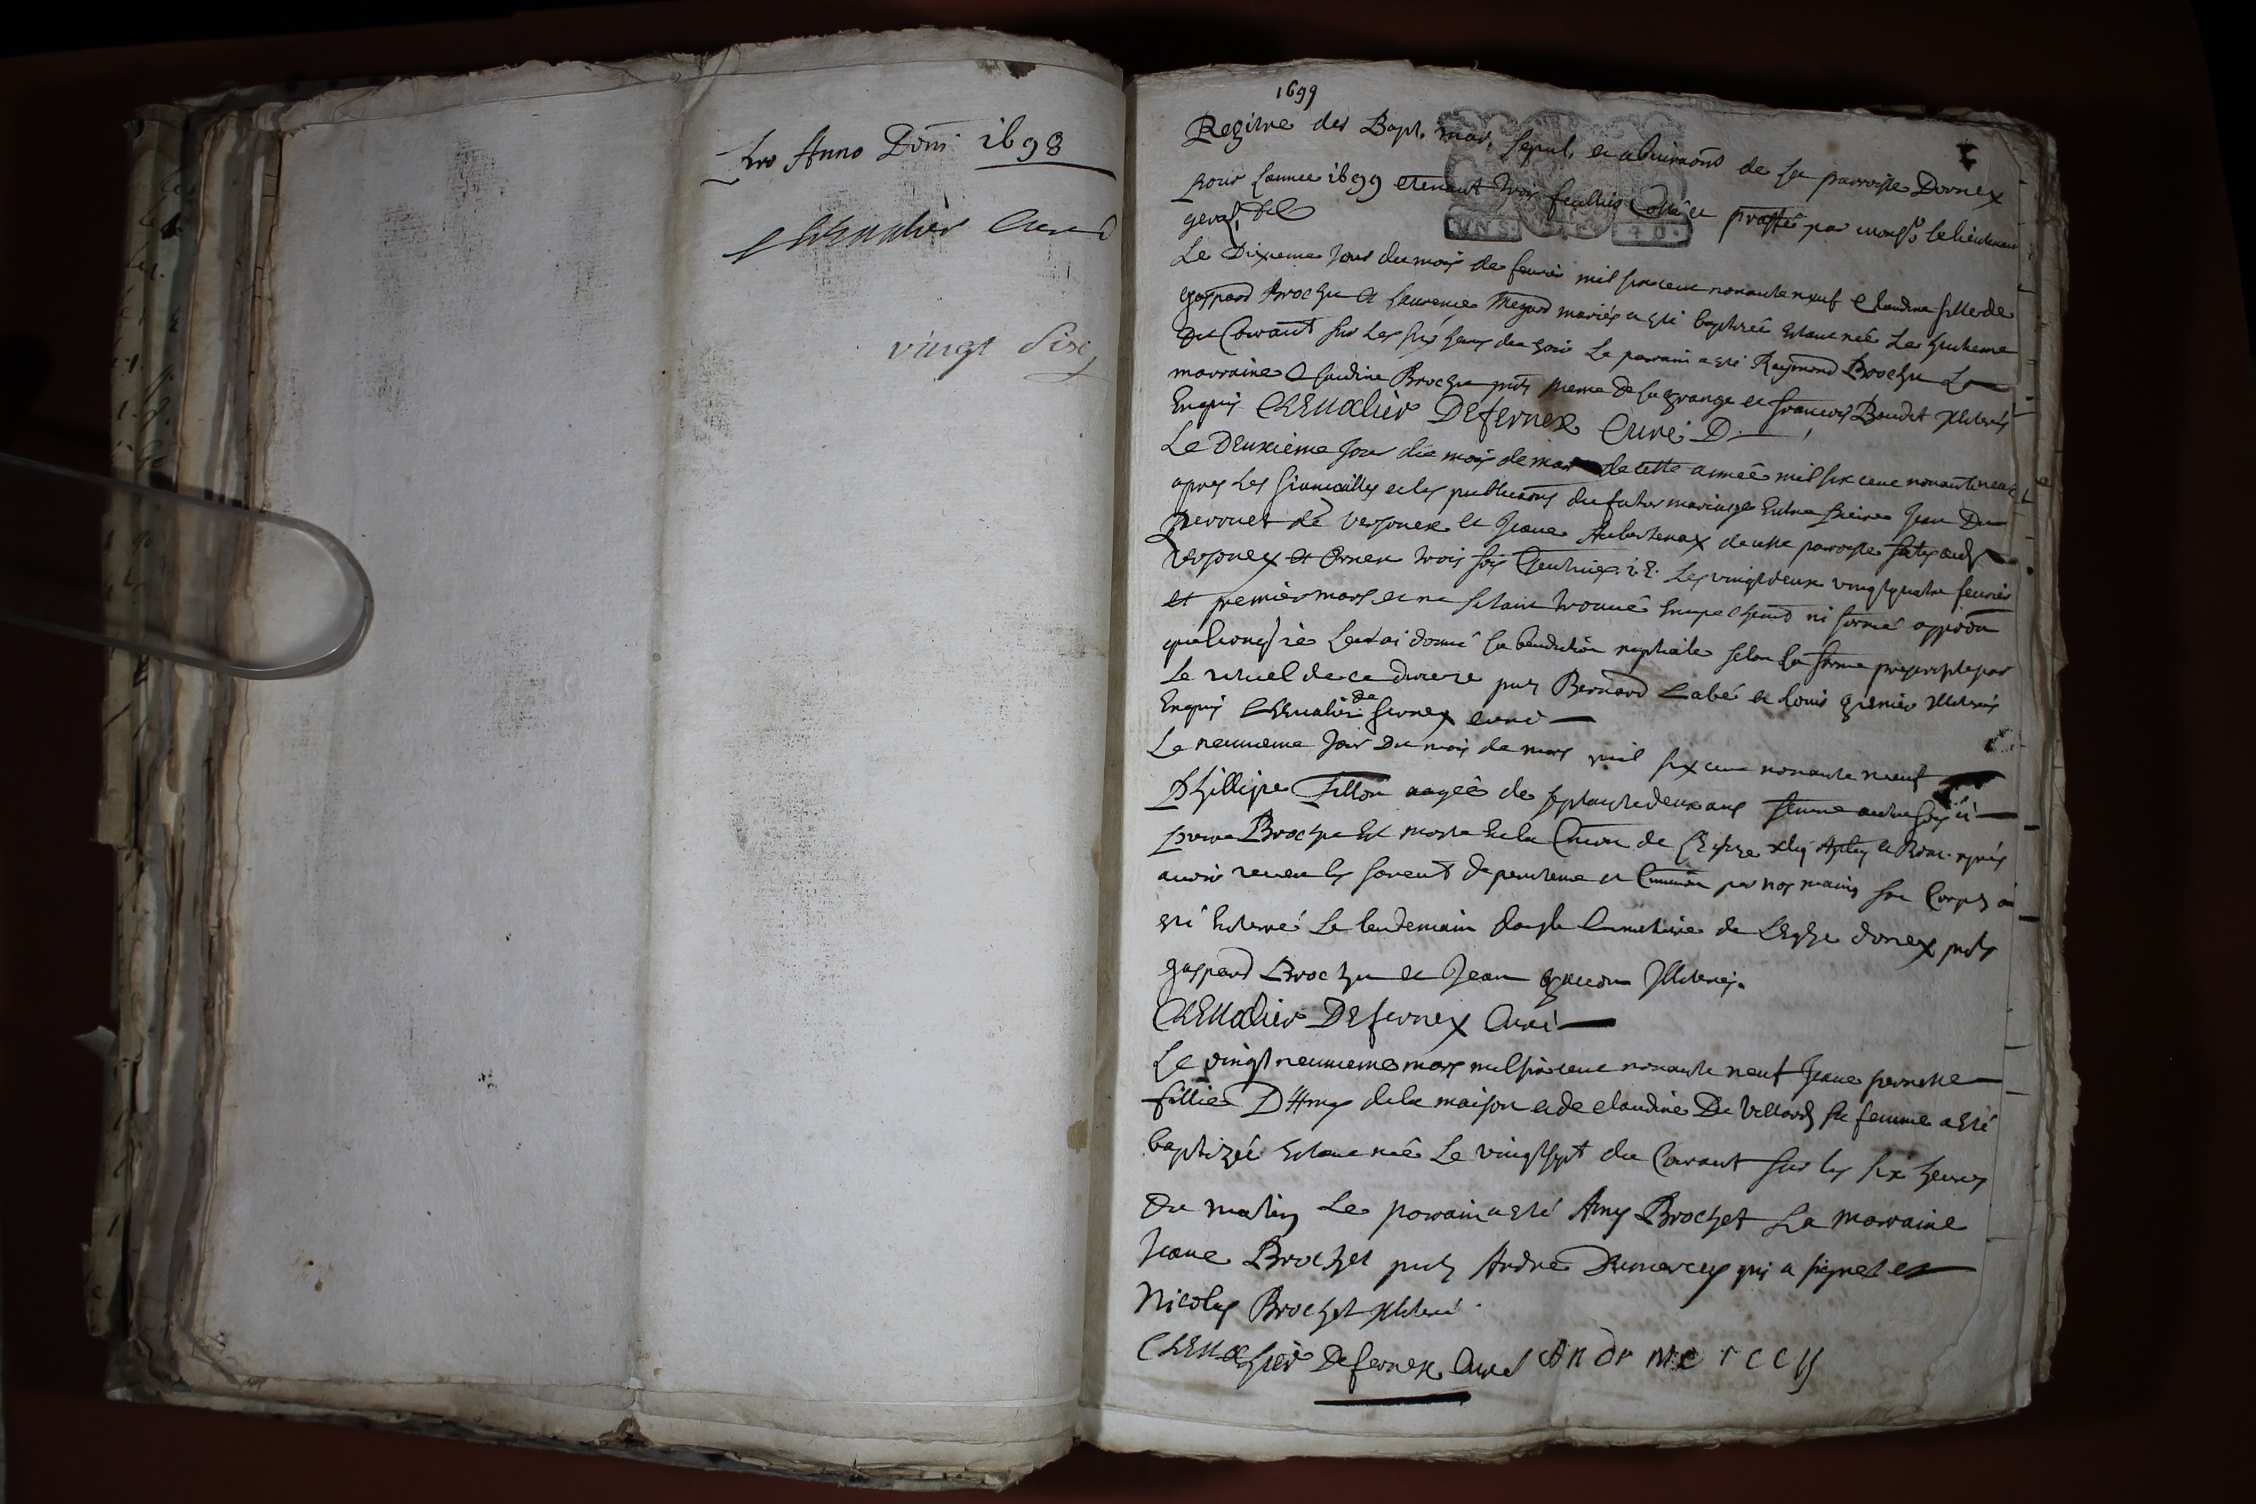 pro Anno Dom̃i 1698
Chevalier Curé
vingt six
1699
Registre des Bapt. mar. sepul. et abiuraõns de la parroisse Dornex
pour l'annee 1699 contenant trois feulliets Cotté et paraffé par monsr le lieutenant
geral
VN S. 4 D.
Le Dixieme Jour du mois de fevrier mil six cent nonante neuf Claudine fille de
gaspard Brochu et Laurence Megard mariés a esté baptizeé estant neé Le huitieme
Du Courant sur Les six heures du soir Le parrain a esté Raymond Brochu La
marraine Claudine Brochu pnts de la grange et françois Baudet Illiterés
Enquis CHEVAlier DEfernex Curé
Le DEuxieme Jour du mois de mars de cette anneé mil six cent nonante neuf
apres Les fiancailles et les publicaons du futur mariage Entre pierre Jean Du
perroues de versonex et Jeane de cette parroisse
versonnex et Ornex trois fois Les vingt deux vingt quatre fevrier
et premier mars et ne s'etant trouvé Empechemt ni formé opposõn
Je Leur ai donné la benediction nuptiale selon la forme prescripte par
Le rituel de ce diocese pnts Bernard Labé et Louis grenier Illiterés
Enquis CHEvalier de fernex curé
Le neuvieme Jour Du mois de mars mil six cent nonante neuf
Phillipe Fillon aageé de septante deux ans femme
pierre Brochu Est morte En la Coñion de l'Eglise Apliq et Rom. aprés
avoir receu les sacremt de penitence et Coñunion par nos mains son Corps a
esté Enterré Le lendemain dans le Cimetiere de L'Eglise dornex pnts
gaspard Brochu et Jean Illiterés.
CHEVAlier DEfernex Curé
Le vingt neuvieme mars mil six cent nonante neuf Jeane pernette
fille D'Amy de la maison et de claudine Du Villard sa femme a esté
baptizeé Estant neé Le vingt sept du Courant sur les six heures
Du matin Le parrain a esté Amy Brochet La marraine
Jeane Brochet pnts André Dumercy qui a signé et
Nicolas Brochet Illiteré.
CHEVAlier Defernex Curé